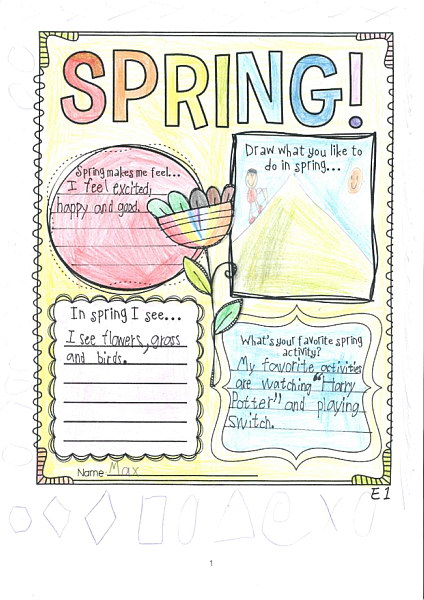 SPRING!
Spring makes me feel...
I feel excited,
happy and good.
Draw what you like to
do in spring...
In spring I see...
I see flowers, grass
and birds.
What's your favorite spring
activity?
My favorite activities
are watching "Harry
Potter" and playing
switch.
Name Max
E1
1